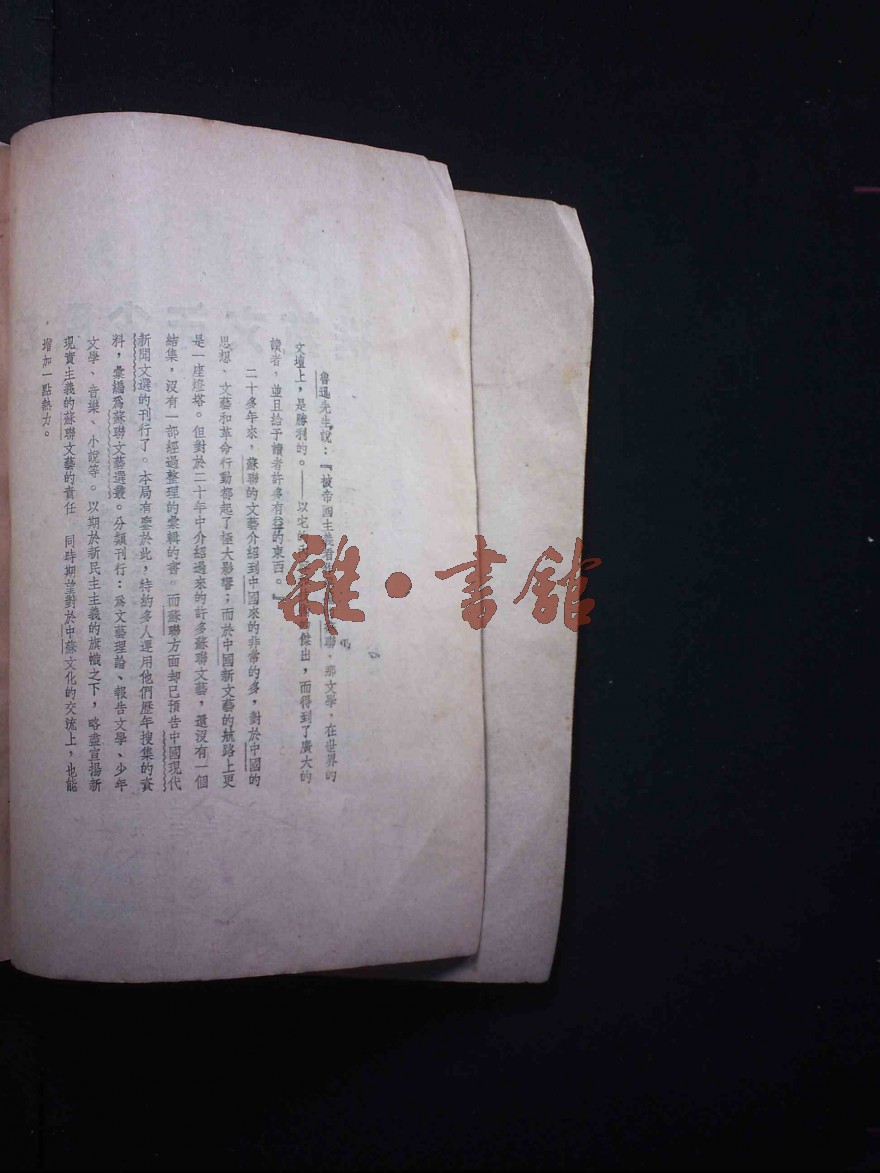 魯迅先生說：『被帝國主義看 聯，那文學，在世界的
文壇上，是勝利的。——以它的 傑出，而得到了廣大的
讀者，並且給予讀者許多有益的東西。』
二十多年來，蘇聯的文藝介紹到中國來的非常的多，對於中國的
思想、文藝和革命行動都起了極大影響；而於中國新文藝的航路上更
是一座燈塔。但對於二十年中介紹過來的許多蘇聯文藝，還沒有一個
結集，沒有一部經過整理的彙輯的書。而蘇聯方面却已預告中國現代
新聞文選的刊行了。本局有鑒於此，特約多人運用他們歷年搜集的資
料，彙編爲蘇聯文藝選叢。分類刊行：爲文藝理論、報告文學、少年
文學、音樂、小說等。以期於新民主主義的旗幟之下，略盡宣揚新
現實主義的蘇聯文藝的責任 同時期望對於中蘇文化的交流上，也能
增加一點熱力。
雜·書館